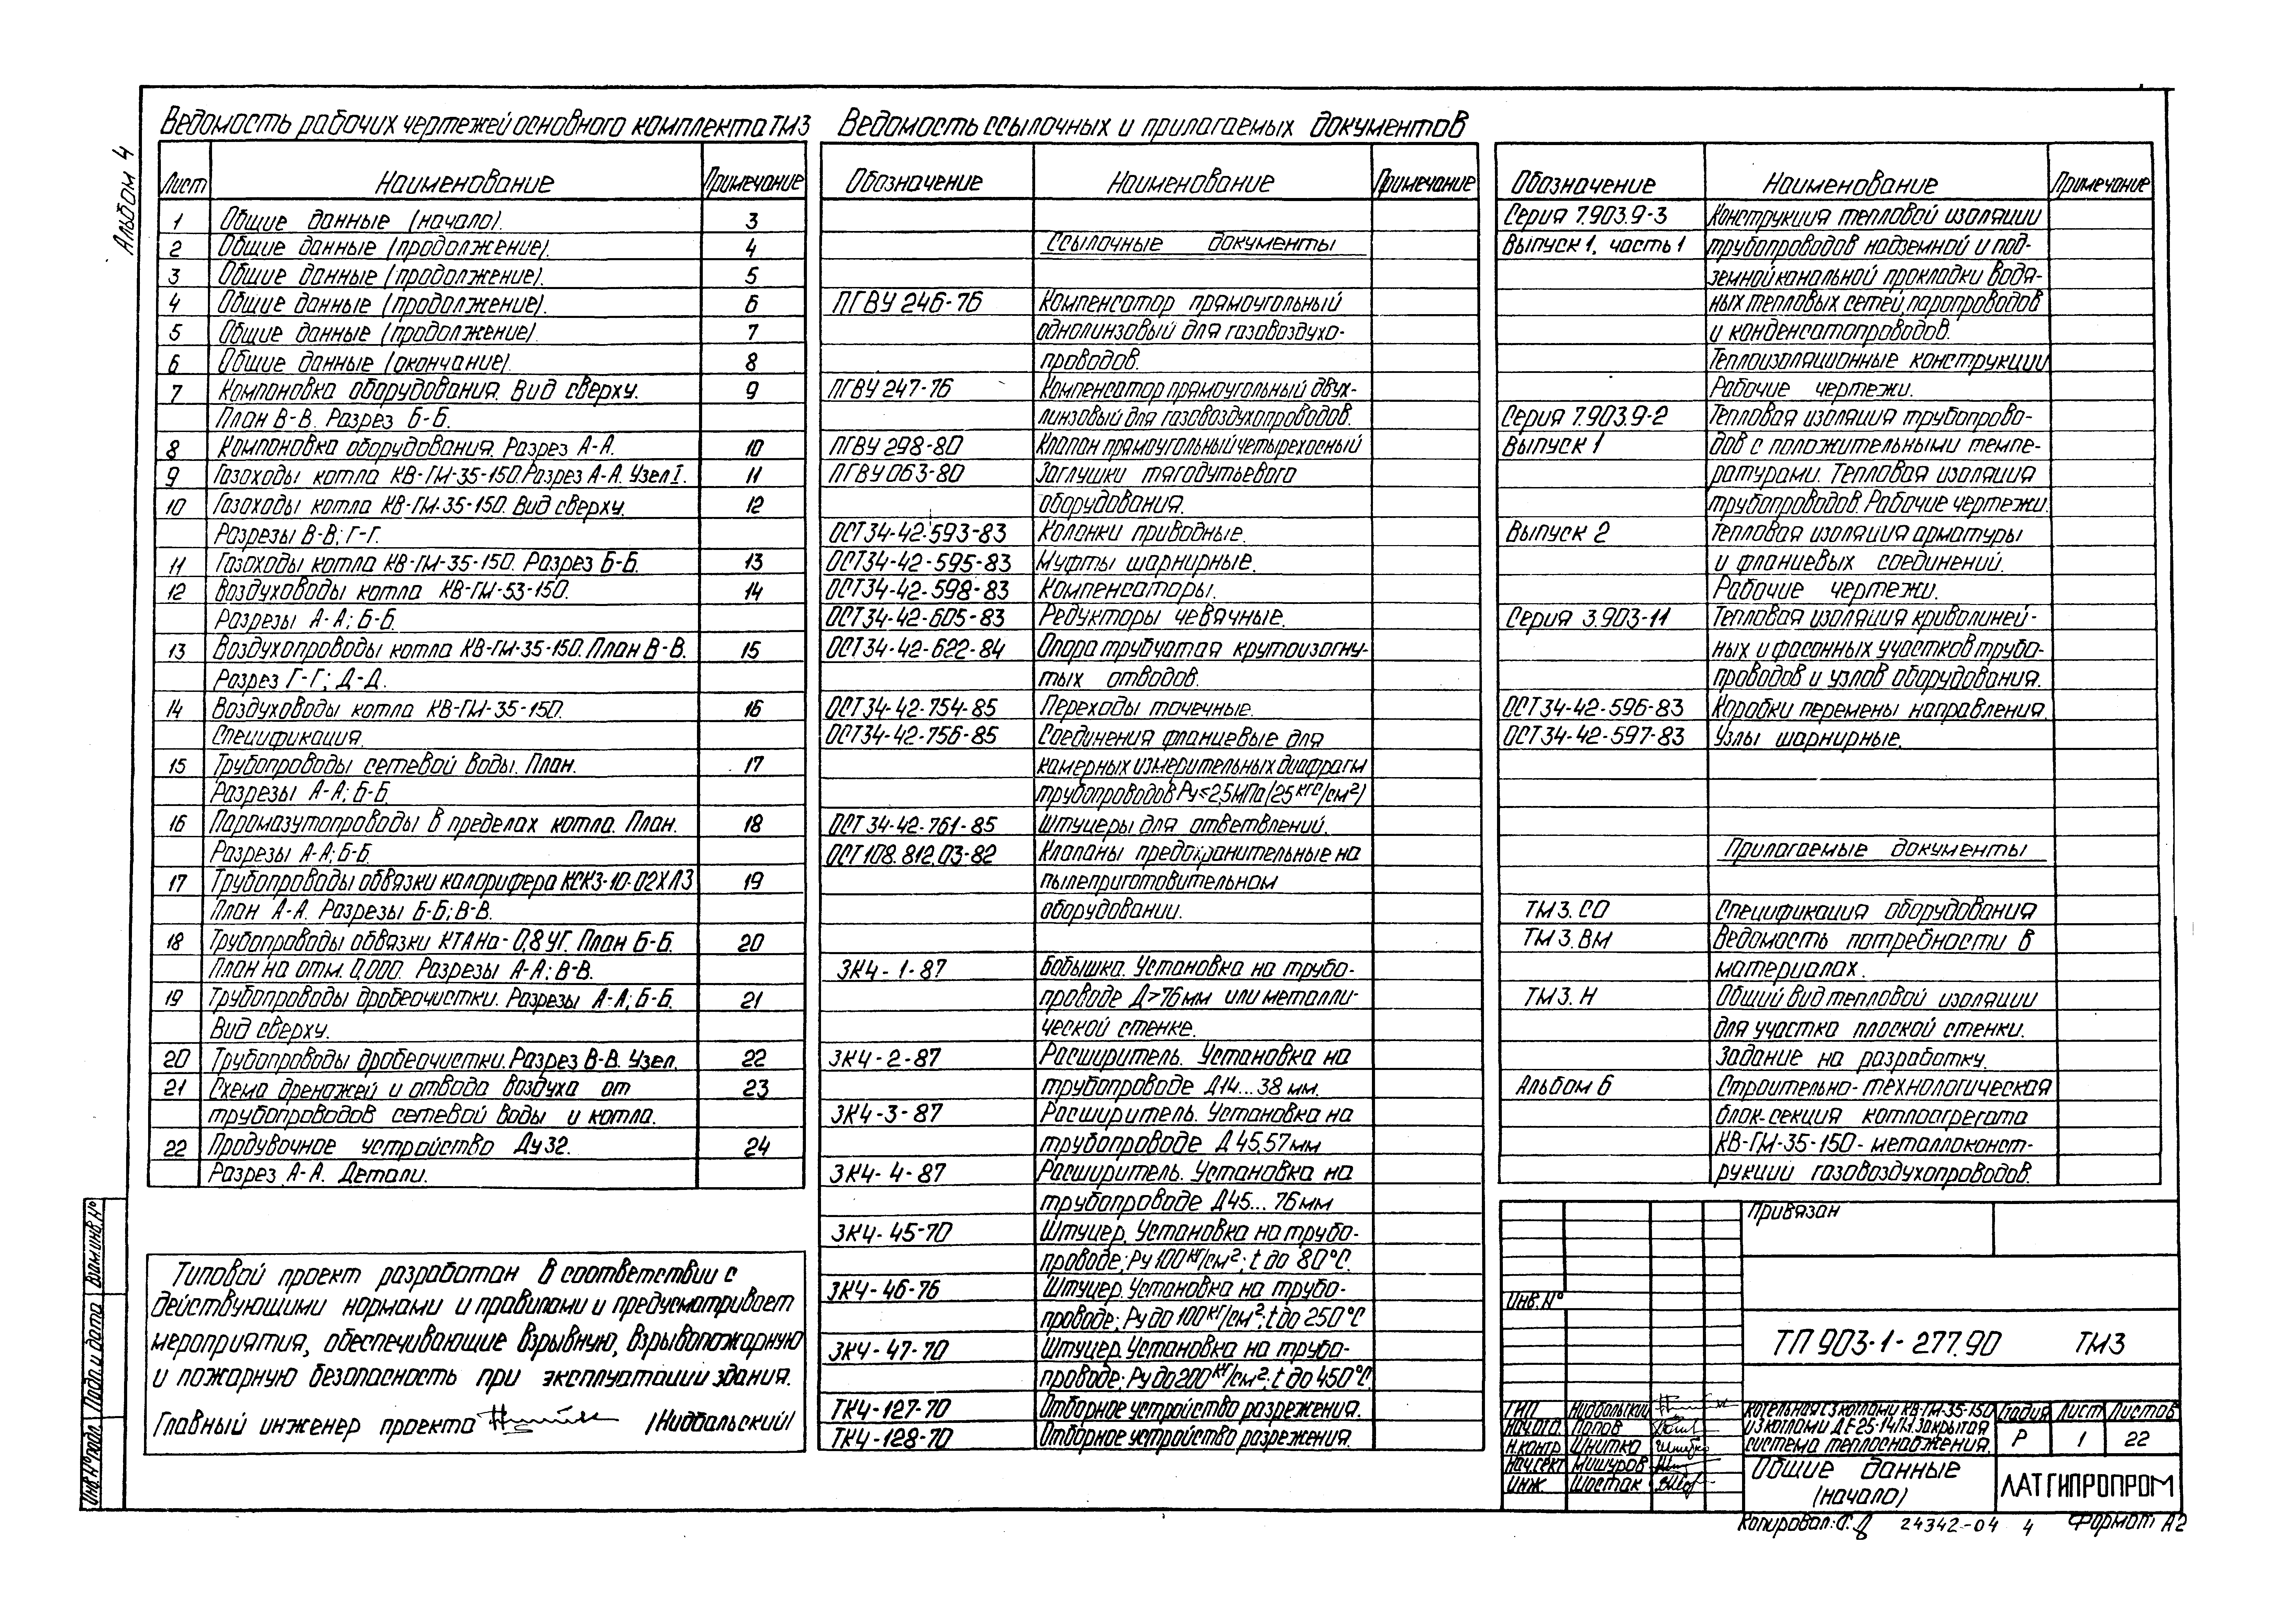 Альбом 4
Ведомость рабочих чертежей основного комплекта ТМ3
Лист Наименование Примечание
1 Общие данные (начало). 3
2 Общие данные (продолжение). 4
3 Общие данные (продолжение). 5
4 Общие данные (продолжение). 6
5 Общие данные (продолжение). 7
6 Общие данные (окончание). 8
7 Компоновка оборудования. Вид сверху. 9
План В-В. Разрез Б-Б.
8 Компоновка оборудования. Разрез А-А. 10
9 Газоходы котла КВ-ГМ-35-150. Разрез А-А. Узел I. 11
10 Газоходы котла КВ-ГМ-35-150. Вид сверху. 12
Разрезы В-В; Г-Г.
11 Газоходы котла КВ-ГМ-35-150. Разрез Б-Б. 13
12 Воздуховоды котла КВ-ГМ-53-150. 14
Разрезы А-А; Б-Б.
13 Воздухопроводы котла КВ-ГМ-35-150. План В-В. 15
Разрез Г-Г; Д-Д.
14 Воздуховоды котла КВ-ГМ-35-150. 16
Спецификация.
15 Трубопроводы сетевой воды. План. 17
Разрезы А-А; Б-Б.
16 Паромазутопроводы в пределах котла. План. 18
Разрезы А-А; Б-Б.
17 Трубопроводы обвязки калорифера КСК3-10-02ХЛ3 19
План А-А. Разрезы Б-Б; В-В.
18 Трубопроводы обвязки КТАНа-0,8УГ. План Б-Б. 20
План на отм. 0,000. Разрезы А-А; В-В.
19 Трубопроводы дробеочистки. Разрезы А-А; Б-Б. 21
Вид сверху.
20 Трубопроводы дробеочистки. Разрез В-В. Узел. 22
21 Схема дренажей и отвода воздуха от 23
трубопроводов сетевой воды и котла.
22 Продувочное устройство Ду32. 24
Разрез А-А. Детали.
Типовой проект разработан в соответствии с
действующими нормами и правилами и предусматривает
мероприятия, обеспечивающие взрывную, взрывопожарную
и пожарную безопасность при эксплуатации здания.
Главный инженер проекта /Нидбальский/
Ведомость ссылочных и прилагаемых документов
Обозначение Наименование Примечание
Ссылочные документы
ПГВУ 246-76 Компенсатор прямоугольный
однолинзовый для газовоздухо-
проводов.
ПГВУ 247-76 Компенсатор прямоугольный двух-
линзовый для газовоздухопроводов.
ПГВУ 298-80 Клапан прямоугольный четырехосный
ПГВУ 063-80 Заглушки тягодутьевого
оборудования.
ОСТ34-42-593-83 Колонки приводные.
ОСТ34-42-595-83 Муфты шарнирные.
ОСТ34-42-598-83 Компенсаторы.
ОСТ34-42-605-83 Редукторы червячные.
ОСТ34-42-622-84 Опора трубчатая крутоизогну-
тых отводов.
ОСТ34-42-754-85 Переходы точечные.
ОСТ34-42-756-85 Соединения фланцевые для
камерных измерительных диафрагм
трубопроводов Ру≤2,5МПа (25 кгс/см²)
ОСТ 34-42-761-85 Штуцеры для ответвлений.
ОСТ108.812.03-82 Клапаны предохранительные на
пылеприготовительном
оборудовании.
ЗК4-1-87 Бобышка. Установка на трубо-
проводе Д>76мм или металли-
ческой стенке.
ЗК4-2-87 Расширитель. Установка на
трубопроводе Д14...38 мм.
ЗК4-3-87 Расширитель. Установка на
трубопроводе Д 45,57мм
ЗК4-4-87 Расширитель. Установка на
трубопроводе Д45... 76мм
ЗК4-45-70 Штуцер. Установка на трубо-
проводе; Ру 100 кг/см²; t до 80°С.
ЗК4-46-76 Штуцер. Установка на трубо-
проводе; Ру до 100 кг/см²; t до 250°С
ЗК4-47-70 Штуцер. Установка на трубо-
проводе; Ру до 200 кг/см²; t до 450°С.
ТК4-127-70 Отборное устройство разрежения.
ТК4-128-70 Отборное устройство разрежения.
Обозначение Наименование Примечание
Серия 7.903.9-3 Конструкция тепловой изоляции
Выпуск 1, часть 1 трубопроводов надземной и под-
земной канальной прокладки водя-
ных тепловых сетей, паропроводов
и конденсатопроводов.
Теплоизоляционные конструкции
Рабочие чертежи.
Серия 7.903.9-2 Тепловая изоляция трубопрово-
Выпуск 1 дов с положительными темпе-
ратурами. Тепловая изоляция
трубопроводов. Рабочие чертежи.
Выпуск 2 Тепловая изоляция арматуры
и фланцевых соединений.
Рабочие чертежи.
Серия 3.903-11 Тепловая изоляция криволиней-
ных и фасонных участков трубо-
проводов и узлов оборудования.
ОСТ34-42-596-83 Коробки перемены направления.
ОСТ34-42-597-83 Узлы шарнирные.
Прилагаемые документы
ТМ3. СО Спецификация оборудования
ТМ3. ВМ Ведомость потребности в
материалах.
ТМ3. Н Общий вид тепловой изоляции
для участка плоской стенки.
Задание на разработку.
Альбом 6 Строительно-технологическая
блок-секция котлоагрегата
КВ-ГМ-35-150 - металлоконст-
рукций газовоздухопроводов.
Привязан
Инв. №
ТП 903-1-277.90 ТМ3
ГИП Нидбальский
Нач.отд. Попов
Н.контр Шнитко
Нач.сект Мишуров
Инж. Шостак
Котельная с 3 котлами КВ-ГМ-35-150
и 3 котлами ДЕ-25-14ГМ. Закрытая
система теплоснабжения.
Стадия Лист Листов
Р 1 22
Общие данные
(начало)
ЛАТГИПРОПРОМ
Копировал: 24342-04 4 Формат А2
Инв. № подл. Подп. и дата Взам.инв. №